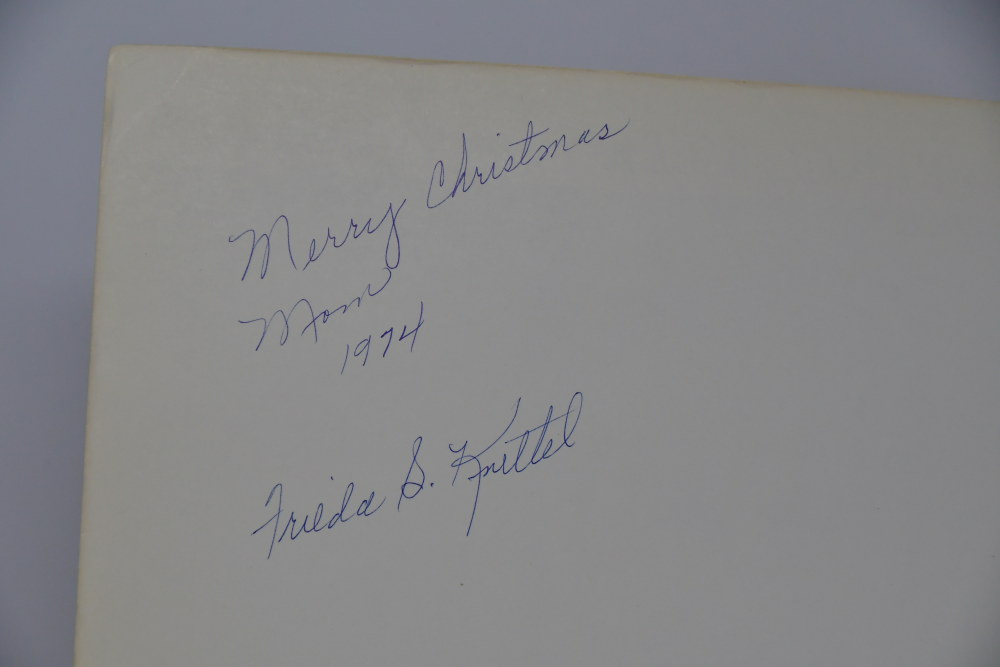 Merry Christmas
Mom
1974
Frieda S. Knittel